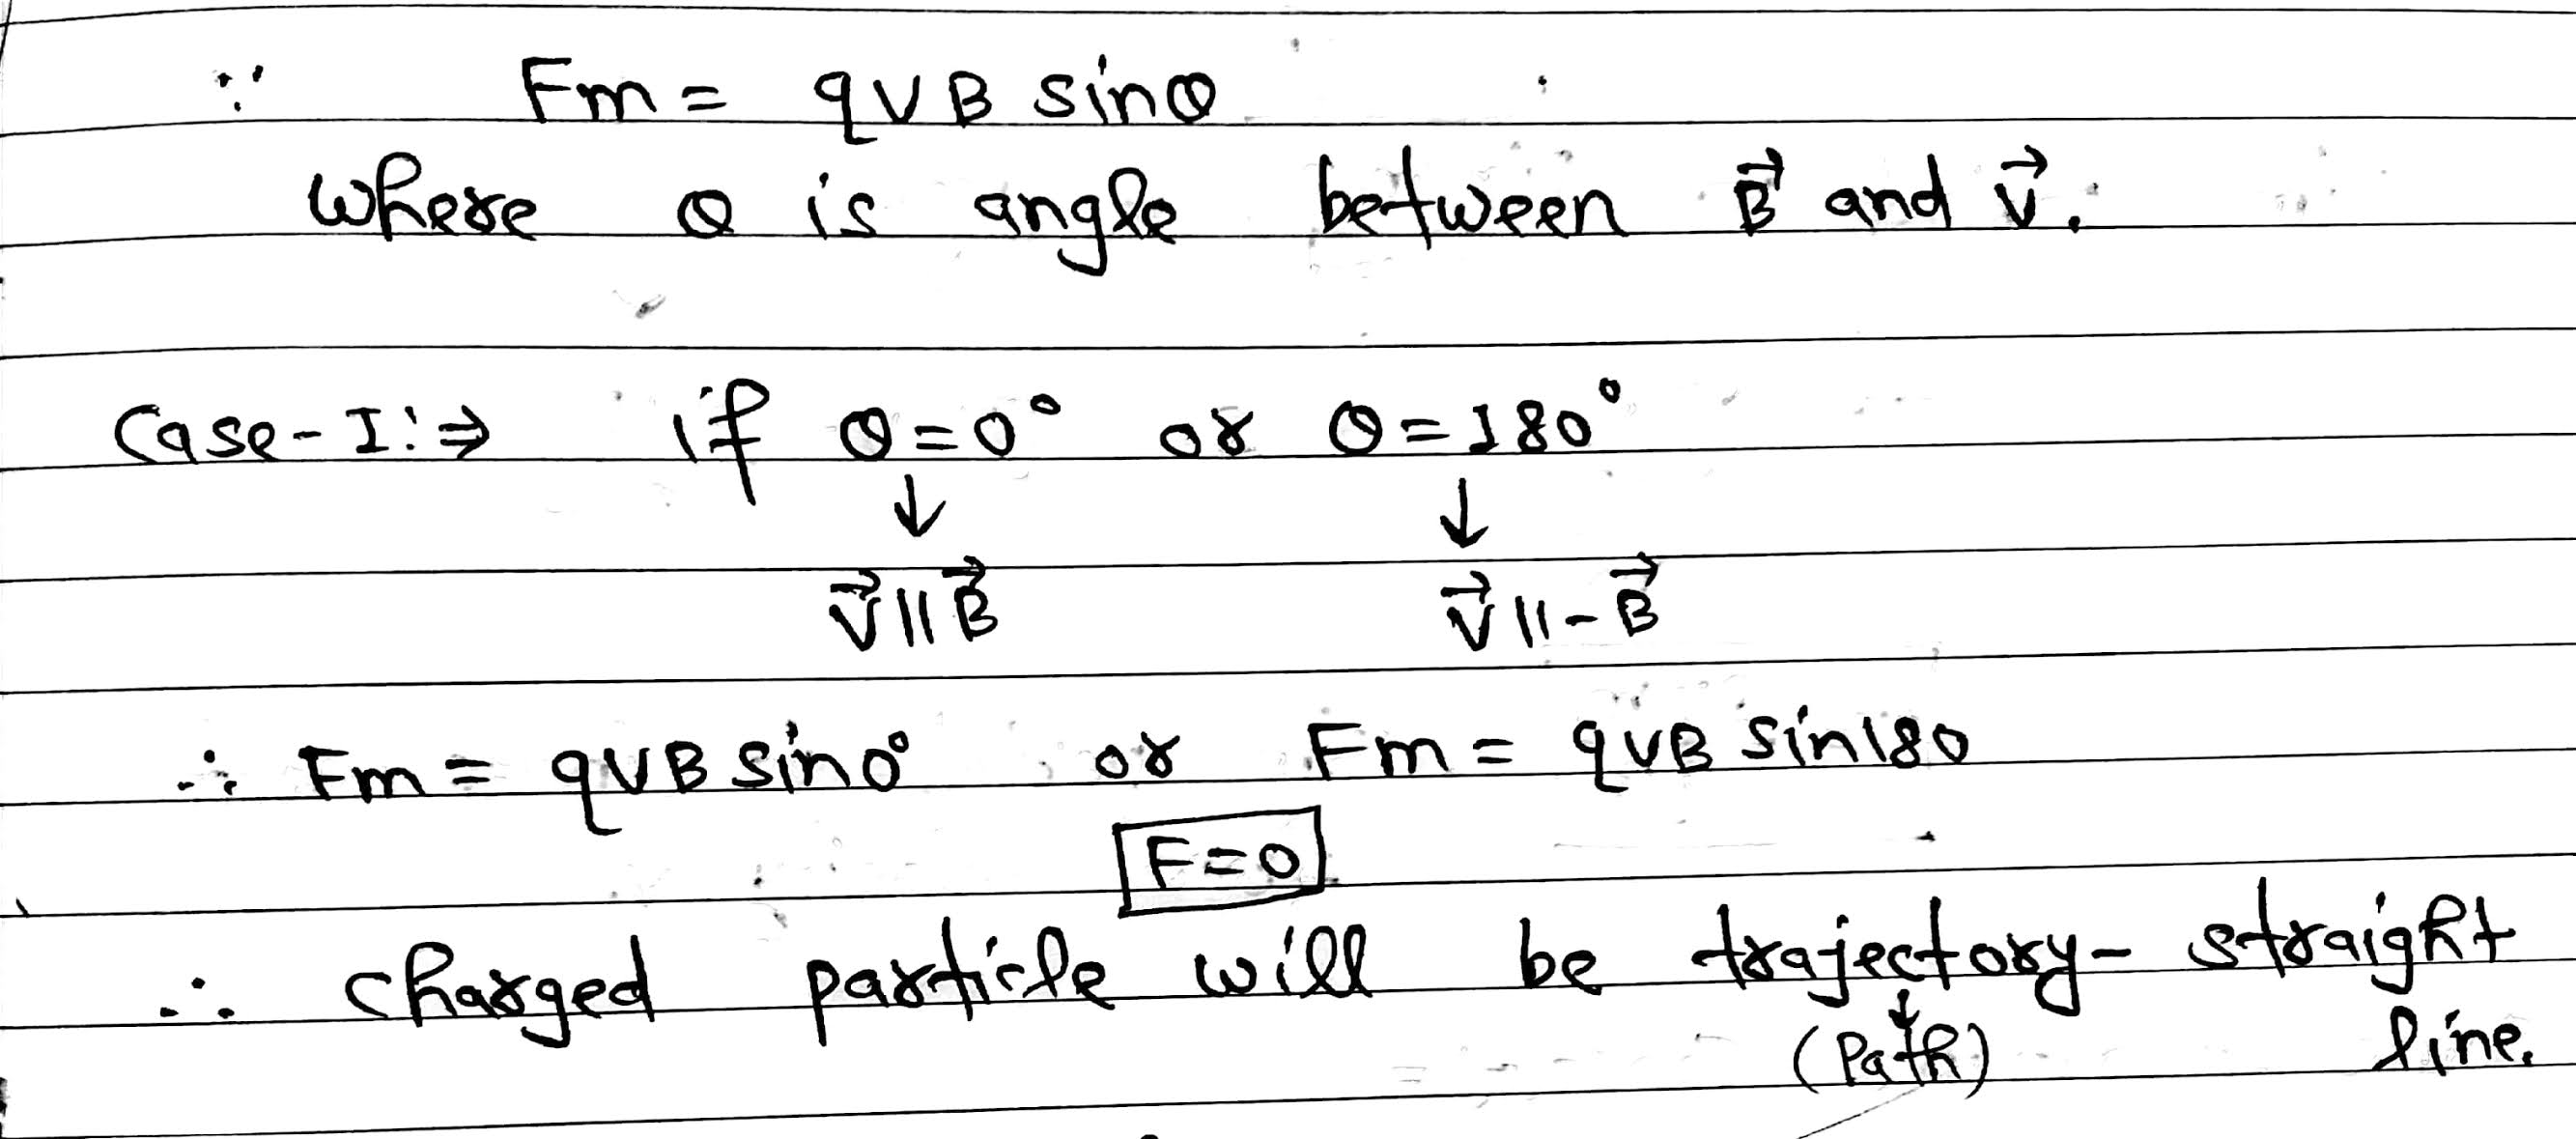 ∵ Fm = qVB sinθ
where θ is angle between B⃗ and V⃗.
Case-I:⇒ if θ=0° or θ=180°
↓ ↓
V⃗ || B⃗ V⃗ || -B⃗
∴ Fm = qVB sin0° or Fm = qVB sin180
F=0
∴ charged particle will be trajectory- straight
↓
(Path) line.